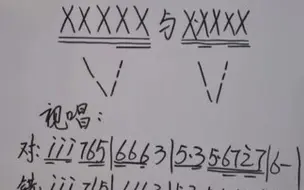 XXXXX与X·XXXX
视唱:
对: i̇i̇i̇765|6663|5·35·672̇7|6-|